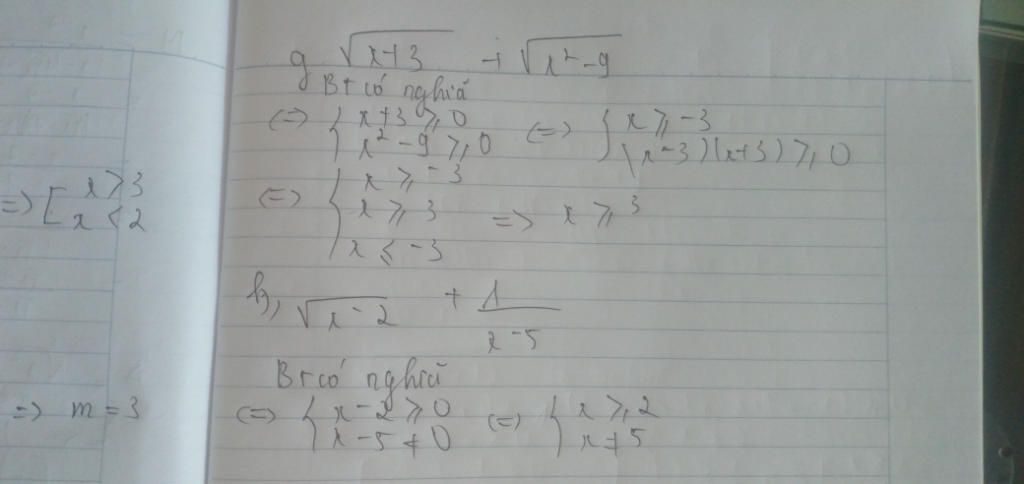 => [ x > 3
x < 2
=> m = 3
g √(x+3) + √(x²-9)
Bt có nghĩa
<=> { x+3 ⩾ 0 <=> { x ⩾ -3
x² - 9 ⩾ 0 (x-3)(x+3) ⩾ 0
<=> { x ⩾ -3
x ⩾ 3 => x ⩾ 3
x ⩽ -3
h, √(x-2) + 1/(x-5)
Bt có nghĩa
<=> { x - 2 ⩾ 0 <=> { x ⩾ 2
x - 5 ≠ 0 x ≠ 5